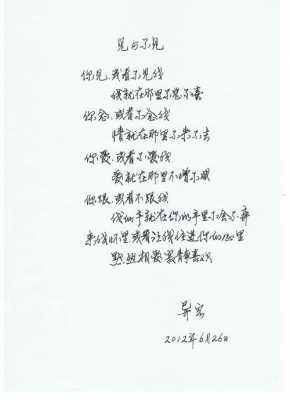 见与不见
你见,或者不见我
我就在那里不悲不喜
你念,或者不念我
情就在那里不来不去
你爱,或者不爱我
爱就在那里不增不减
你跟,或者不跟我
我的手就在你的手里不舍不弃
来我怀里或者让我住进你的心里
默然相爱寂静喜欢
2012年6月26日